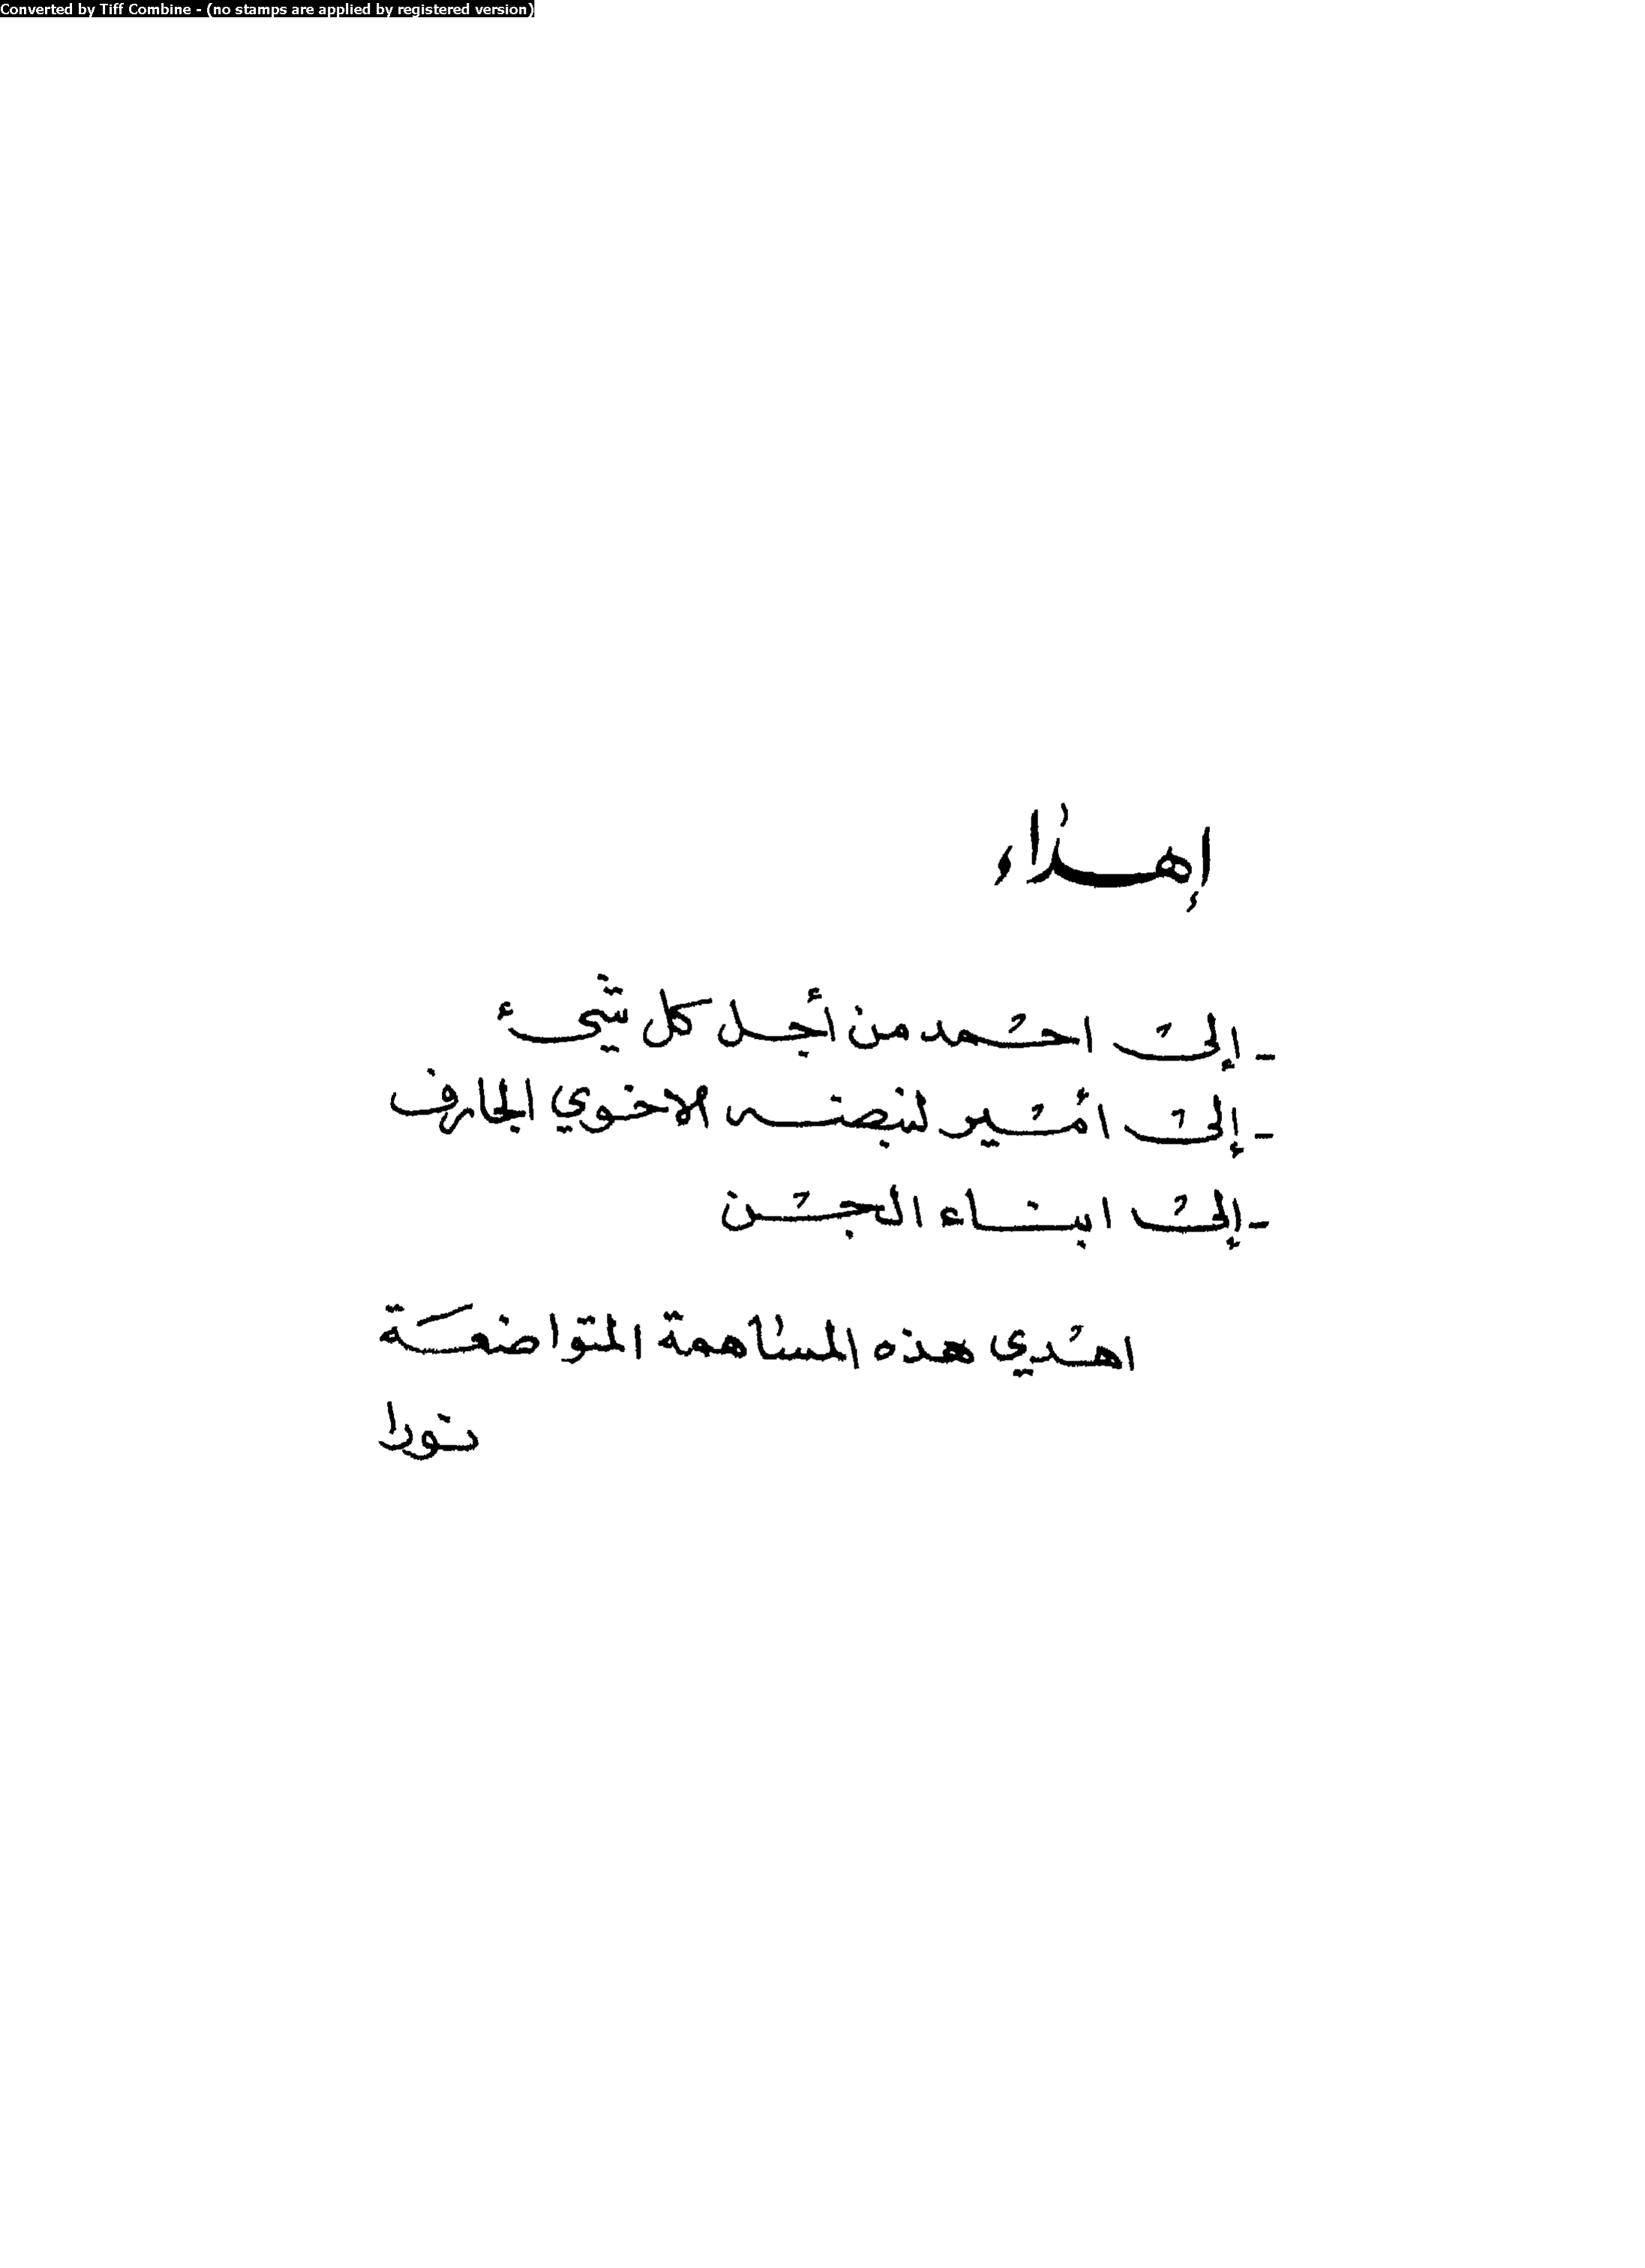 Converted by Tiff Combine - (no stamps are applied by registered version)
إهداء
- إلى احمد من أجل كل شيء
- إلى امير لنبضه الاخوي الجارف
- إلى ابناء الجن
اهدي هذه المساهمة المتواضعة
نورا